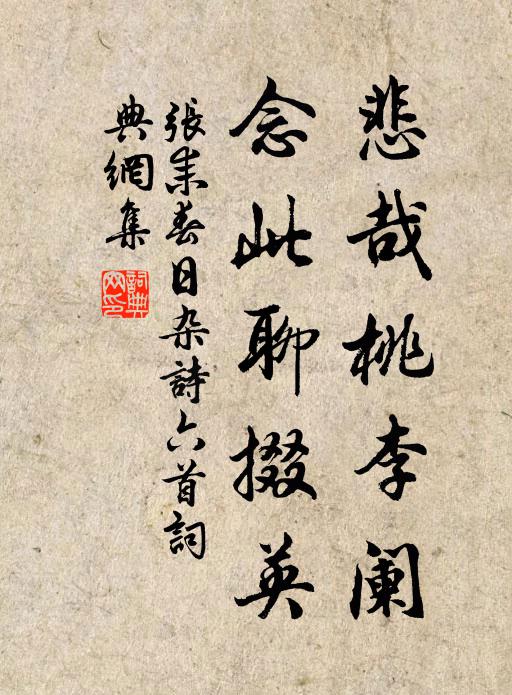 悲哉桃李阑
念此聊掇英
張耒春日杂詩六首詞
典網集
詞典网印